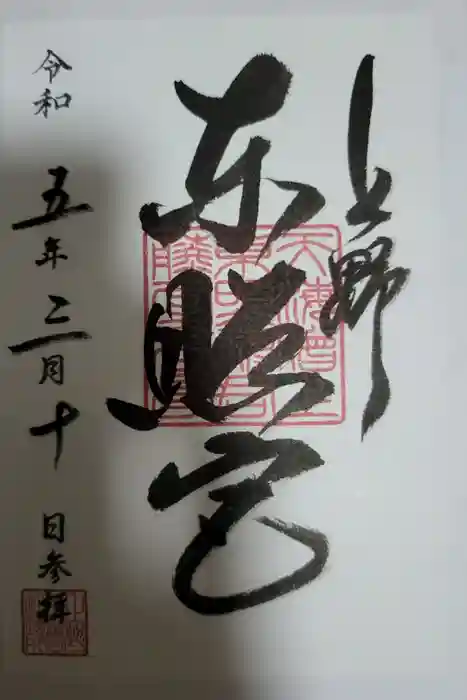 上野
東照宮
令和五年三月十日参拝